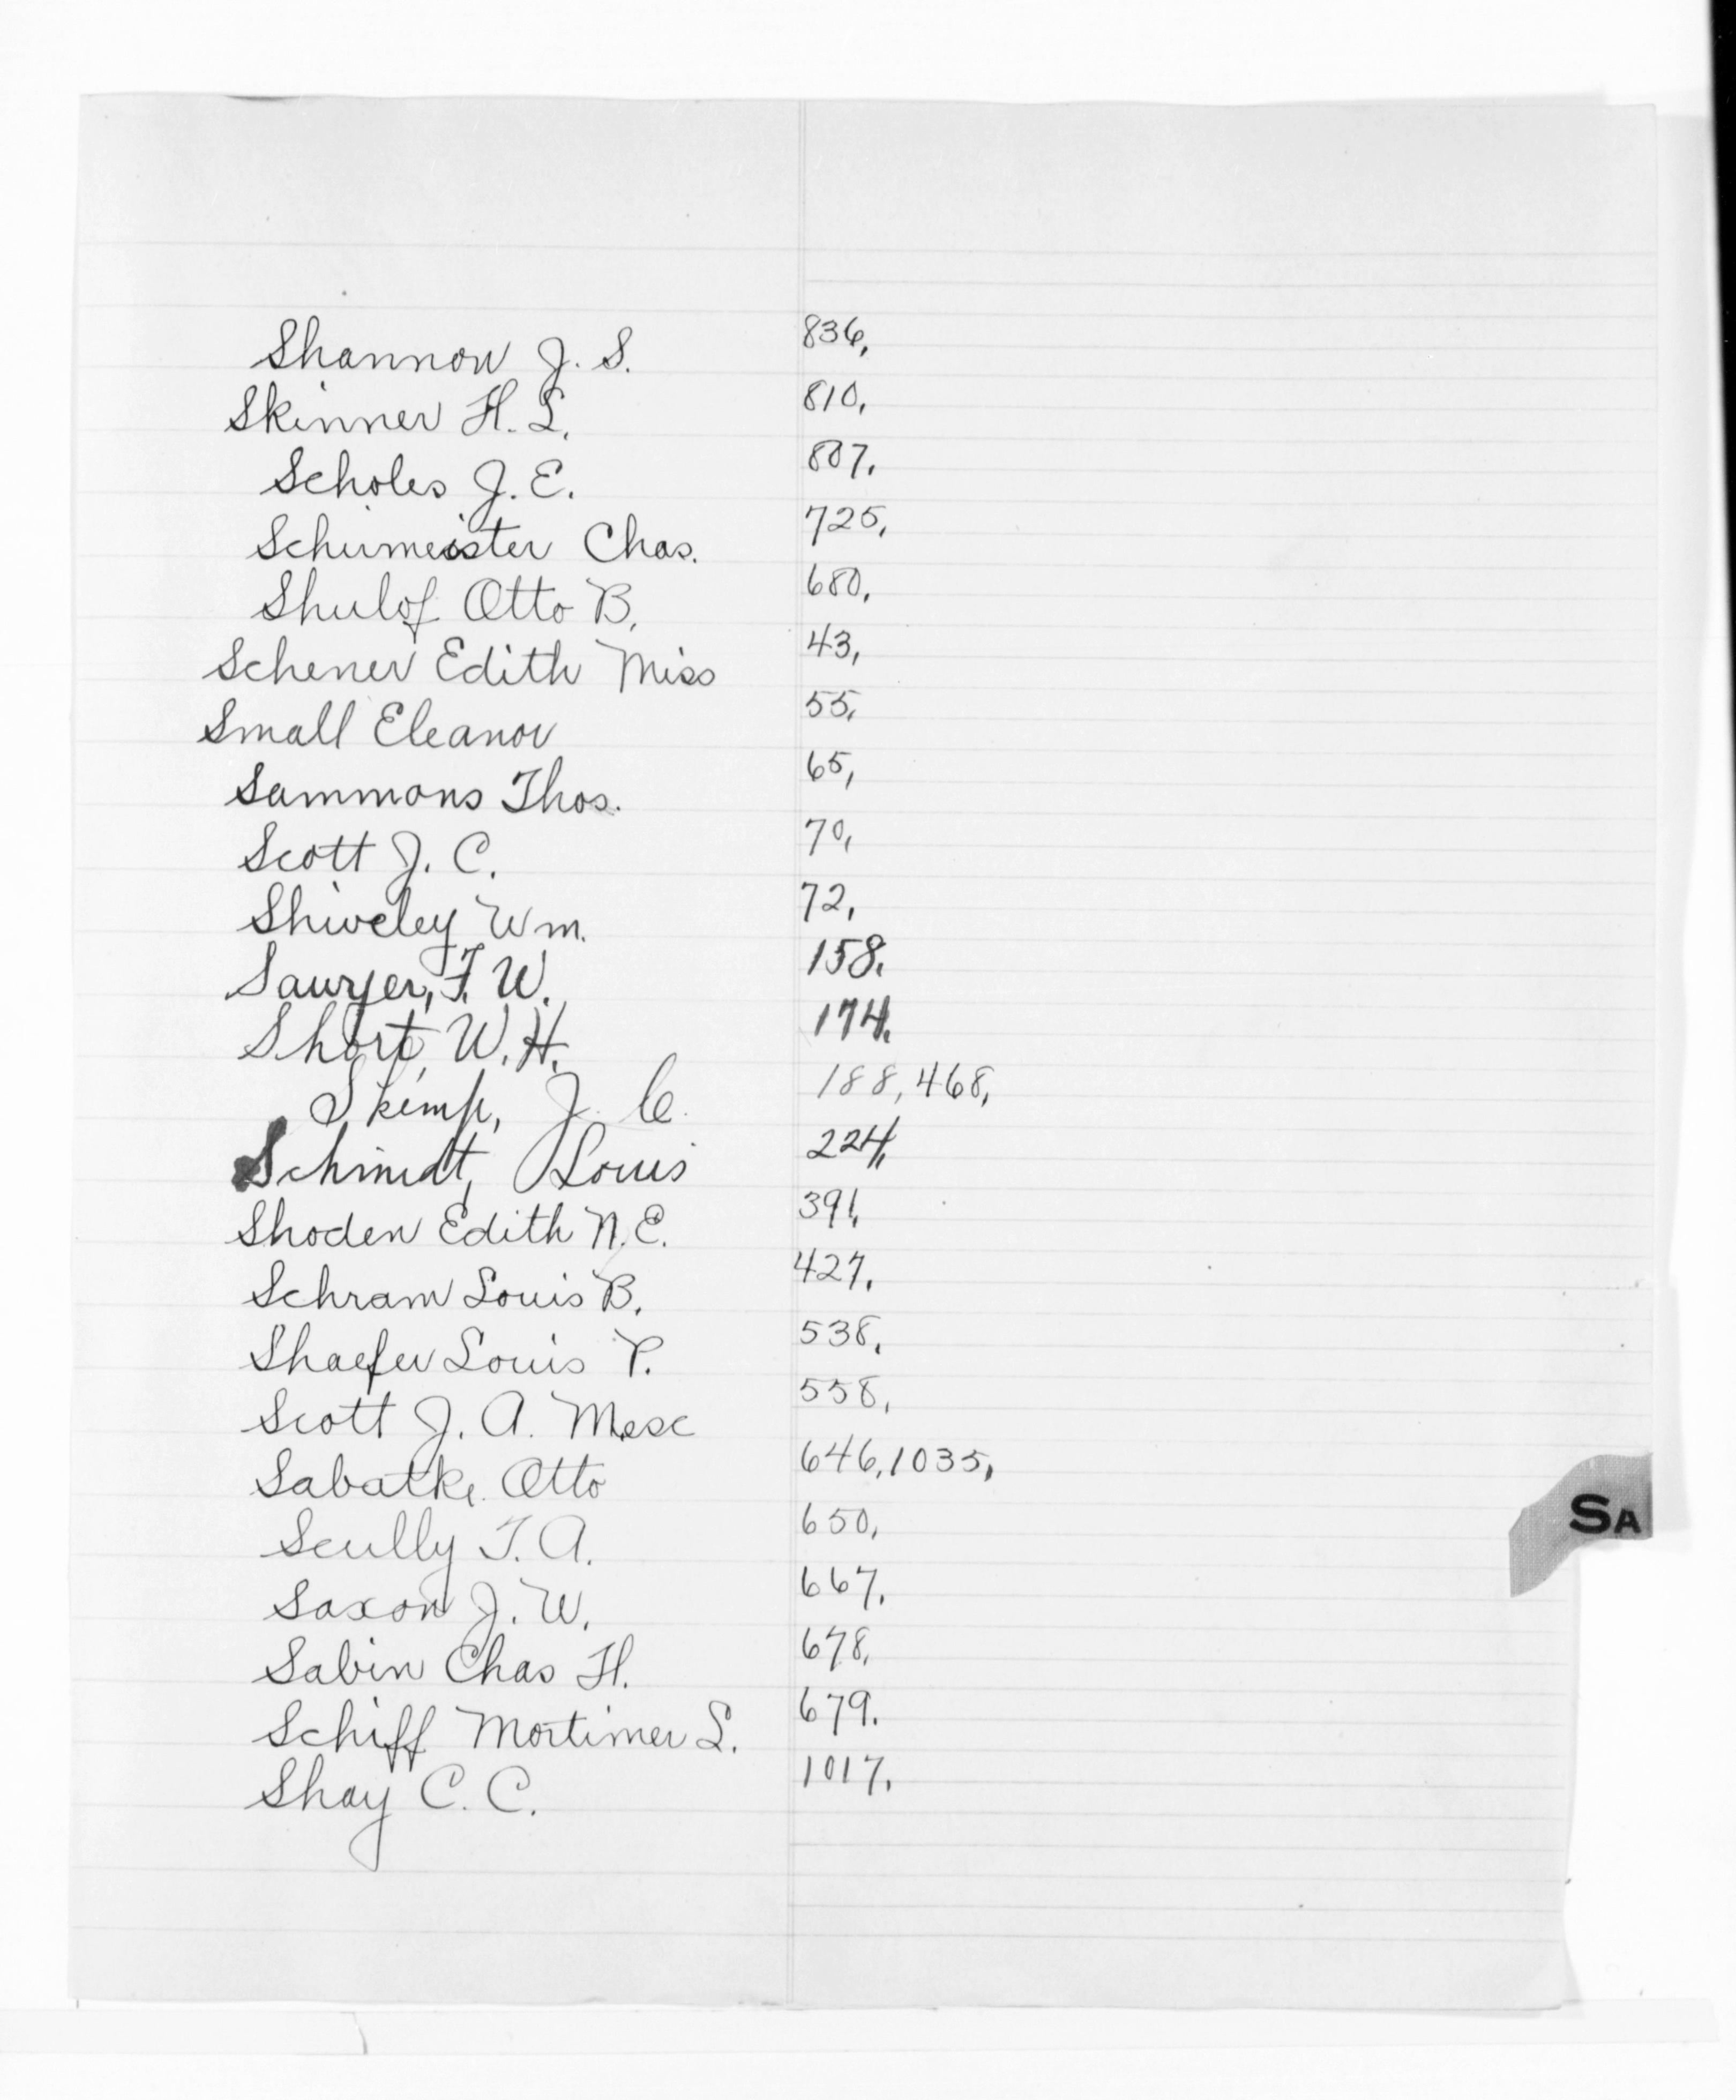 Shannon J. S. 836,
Skinner H. L. 810,
Scholes J. E. 807,
Schirmeister Chas. 725,
Shulof Otto B. 680,
Schener Edith Miss 43,
Small Eleanor 55,
Sammons Thos. 65,
Scott J. C. 70,
Shiveley Wm. 72,
Sawyer, F. W. 158,
Short, W. H. 174,
Skemp, J. C. 188, 468,
Schmidt, Louis 224,
Shoden Edith N. E. 391,
Schram Louis B. 427,
Shaefer Louis P. 538,
Scott J. A. 558,
Sabatke Otto 646, 1035,
Scully T. A. 650,
Saxon J. W. 667,
Sabin Chas H. 678,
Schiff Mortimer L. 679.
Shay C. C. 1017,
SA